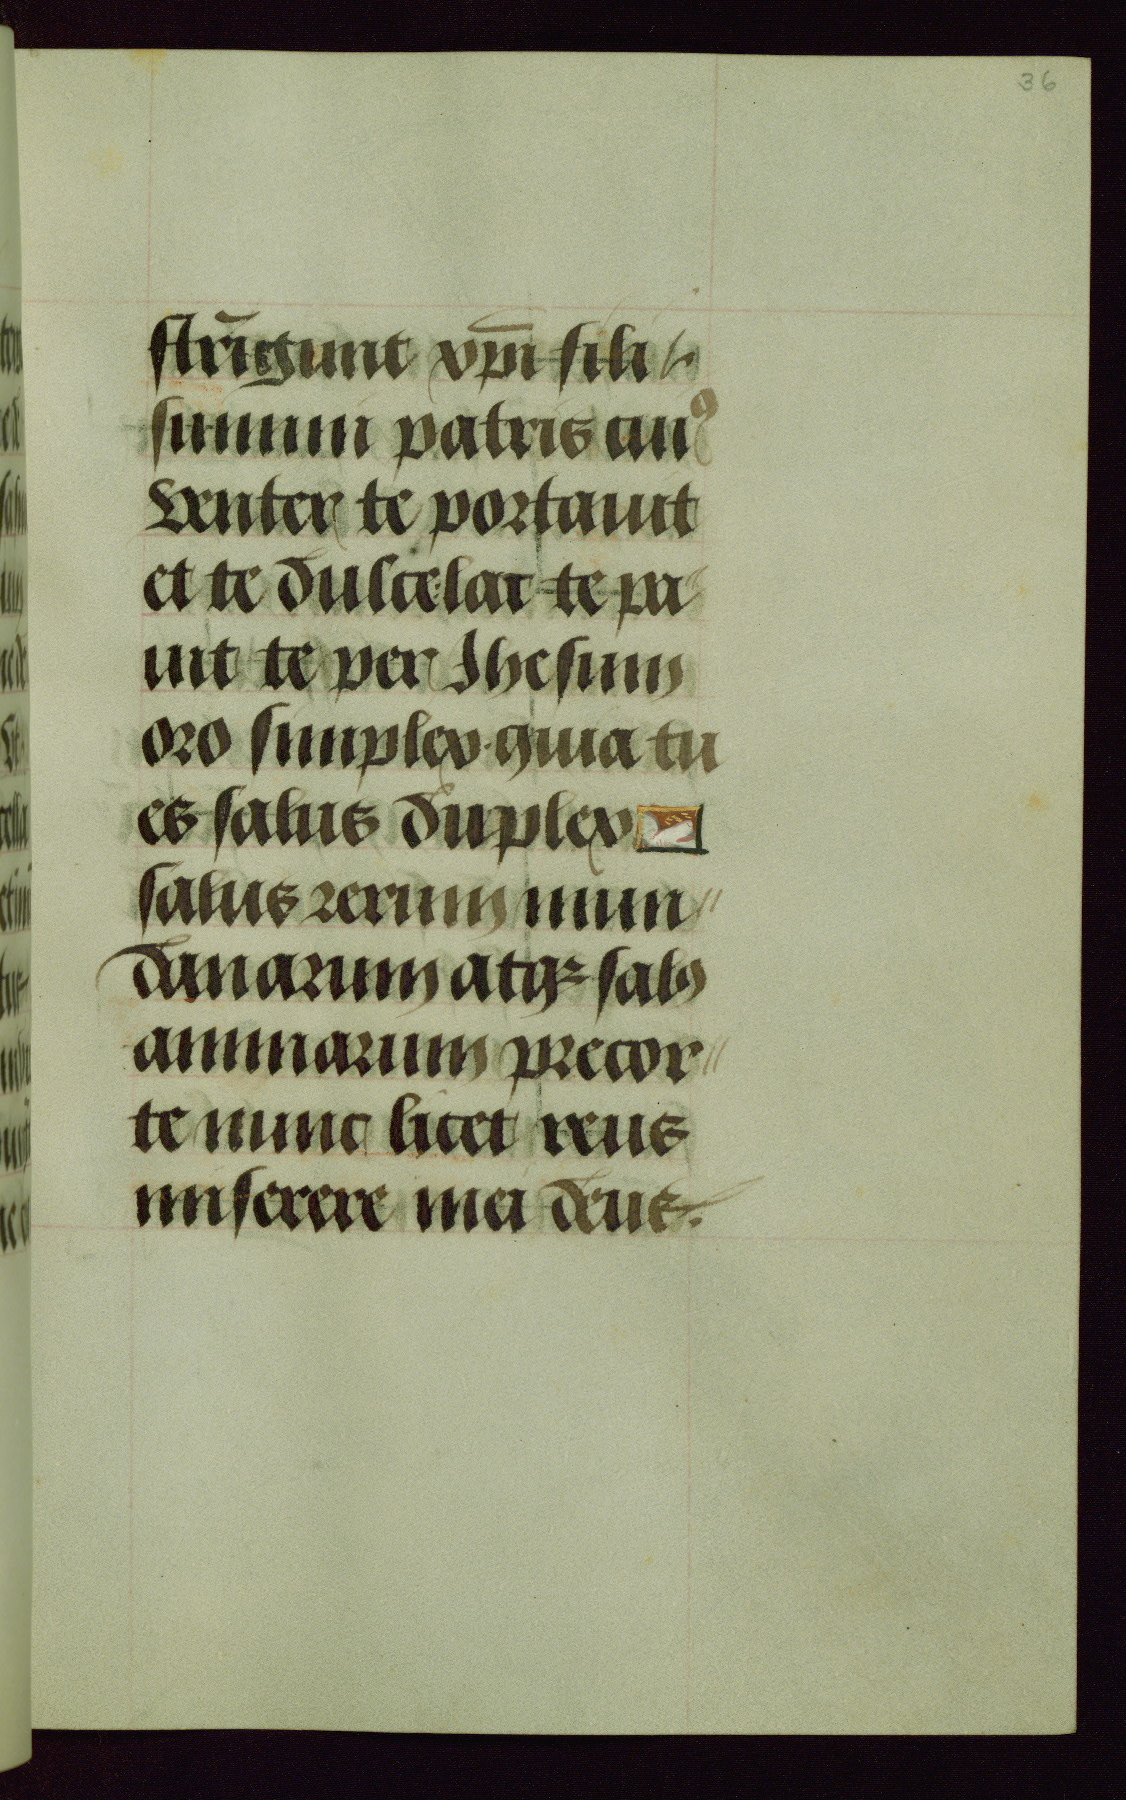 36
strīgunt xp̄i fili
summi patris cuiꝰ
venter te portauit
et te dulce lac te pa
uit te per Jhesum
oro simplex quia tu
es salus duplex
salus rerum mun
danarum atqꝫ salꝰ
animarum precor
te nunc licet reus
miserere mei deus.